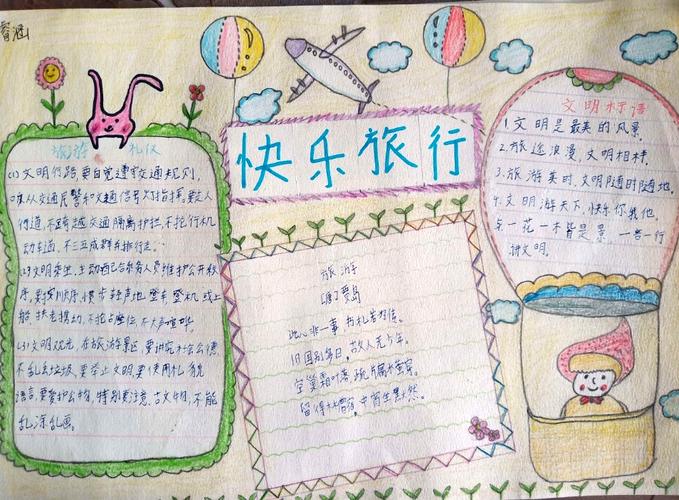 睿涵
快乐旅行
旅游 礼仪
(1)文明行路,要自觉遵守交通规则,
从交通民警和交通信号灯指挥,要走人
行道,不跨越交通隔离护拦,不抢行机
动车道,不三五成群并排行走。
(2)文明乘坐,主动配合乘务人员维护公共秩
序,要按顺序,慢步轻声地登车登机或上
船,扶老携幼,不抢占座位,不大声喧哗。
(3)文明观光,在旅游景区,要讲究社会公德,
不乱丢垃圾,要举止文明,要使用礼貌
语言,要爱护公物,特别要注意,古文物,不能
乱涂乱画。
旅游
[唐]贾岛
此心非一事,书札若为传。
旧国别多日,故人无少年。
空巢霜叶落,疏牖水萤穿。
留得林僧宿,中宵坐默然。
文明标语
1.文明是最美的风景。
2.旅途浪漫,文明相伴。
3.旅游英时,文明随时随地。
4.文明游天下,快乐你我他。
5.一花一木皆是景,一言一行
讲文明。